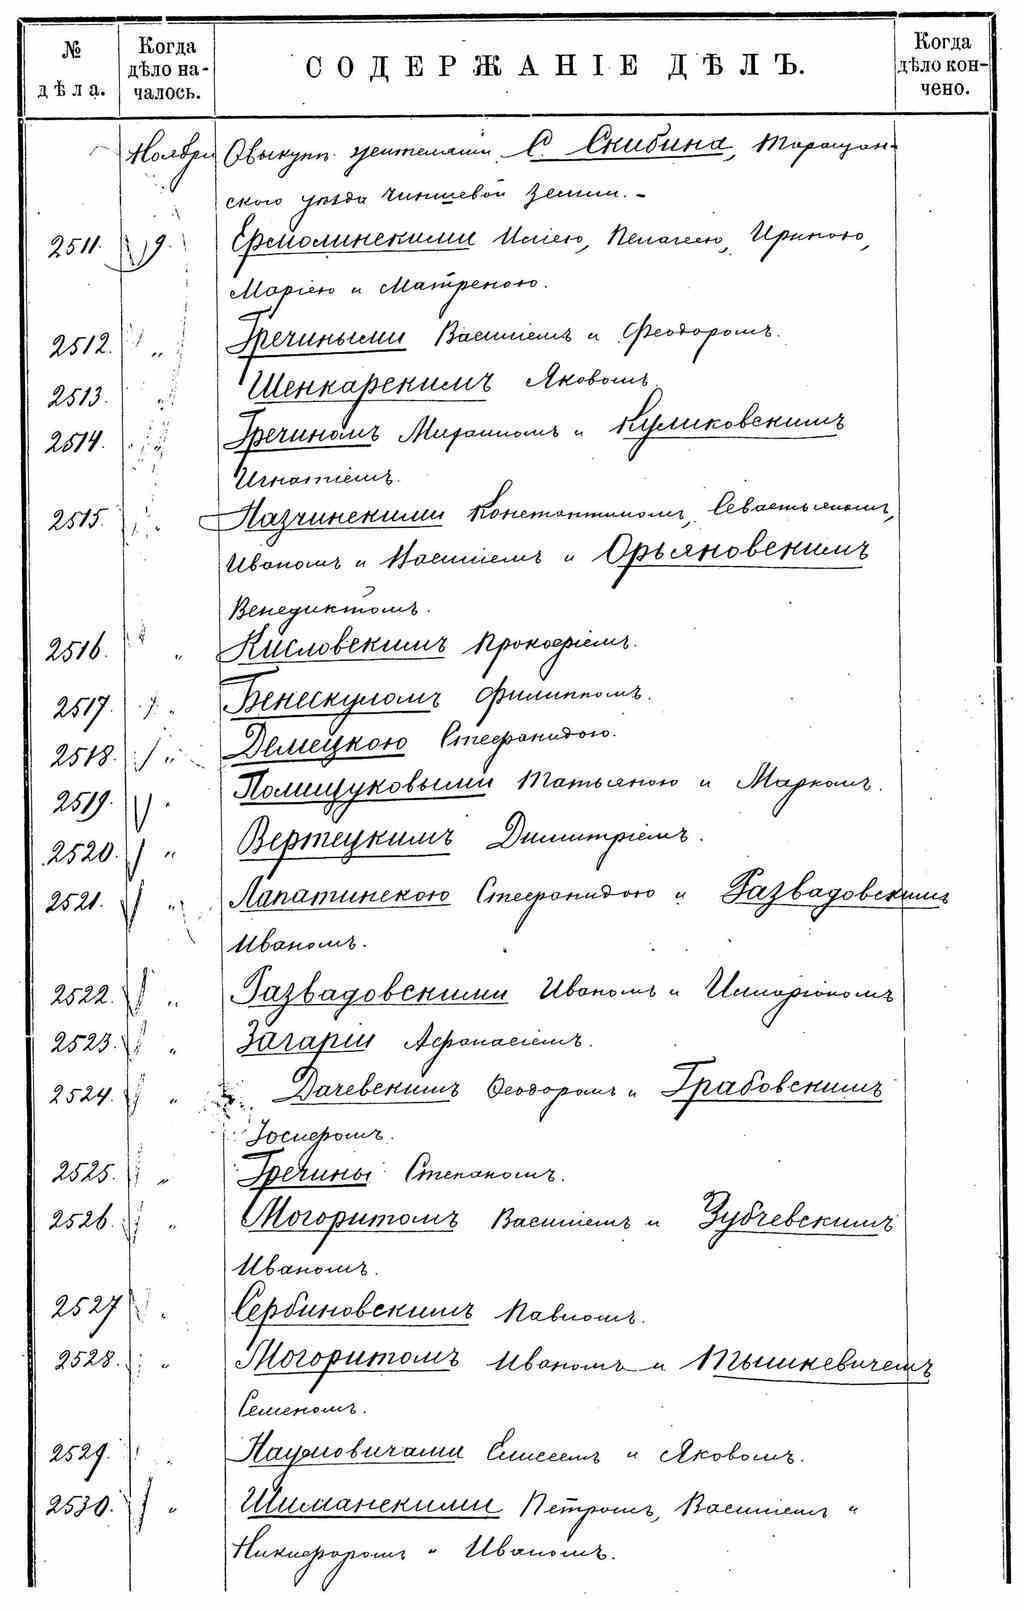 № дѣла.
Когда дѣло началось.
СОДЕРЖАНІЕ ДѢЛЪ.
Когда дѣло кончено.
Ноября О выкупѣ жителями С. Скибина, Таращан-
скаго уѣзда чиншевой земли. -
2511. 9. Ермолинскими Иліею, Пелагеею, Ириною,
Маріею и Матреною.
2512. „ Гречиными Василіемъ и Феодоромъ.
2513. Шенкарскимъ Яковомъ
2514. Гречиномъ Михаиломъ и Куликовскимъ
Игнатіемъ.
2515. „ Лазчинскими Константиномъ, Севастьяномъ,
Иваномъ и Василіемъ и Орьяновскимъ
Венедиктомъ.
2516. „ Кисловскимъ Прокофіемъ.
2517. „ Бенескуломъ Филиппомъ.
2518. „ Демецкою Стефанидою.
2519. „ Полищуковыми Татьяною и Маркомъ.
2520. „ Вертецкимъ Димитріемъ.
2521. „ Лапатинскою Стефанидою и Развадовскимъ
Иваномъ.
2522. „ Развадовскими Иваномъ и Илларіономъ
2523. „ Загаріи Афанасіемъ.
2524. „ Дачевскимъ Феодоромъ и Грабовскимъ
Іосифомъ.
2525. „ Гречины Степаномъ.
2526. „ Могоритомъ Василіемъ и Зубчевскимъ
Иваномъ.
2527 „ Сербиновскимъ Павломъ.
2528. „ Могоритомъ Иваномъ и Тышкевичемъ
Семеномъ.
2529. „ Наумовичами Елисеемъ и Яковомъ.
2530. „ Шиманскими Петромъ, Василіемъ и
Никифоромъ и Иваномъ.